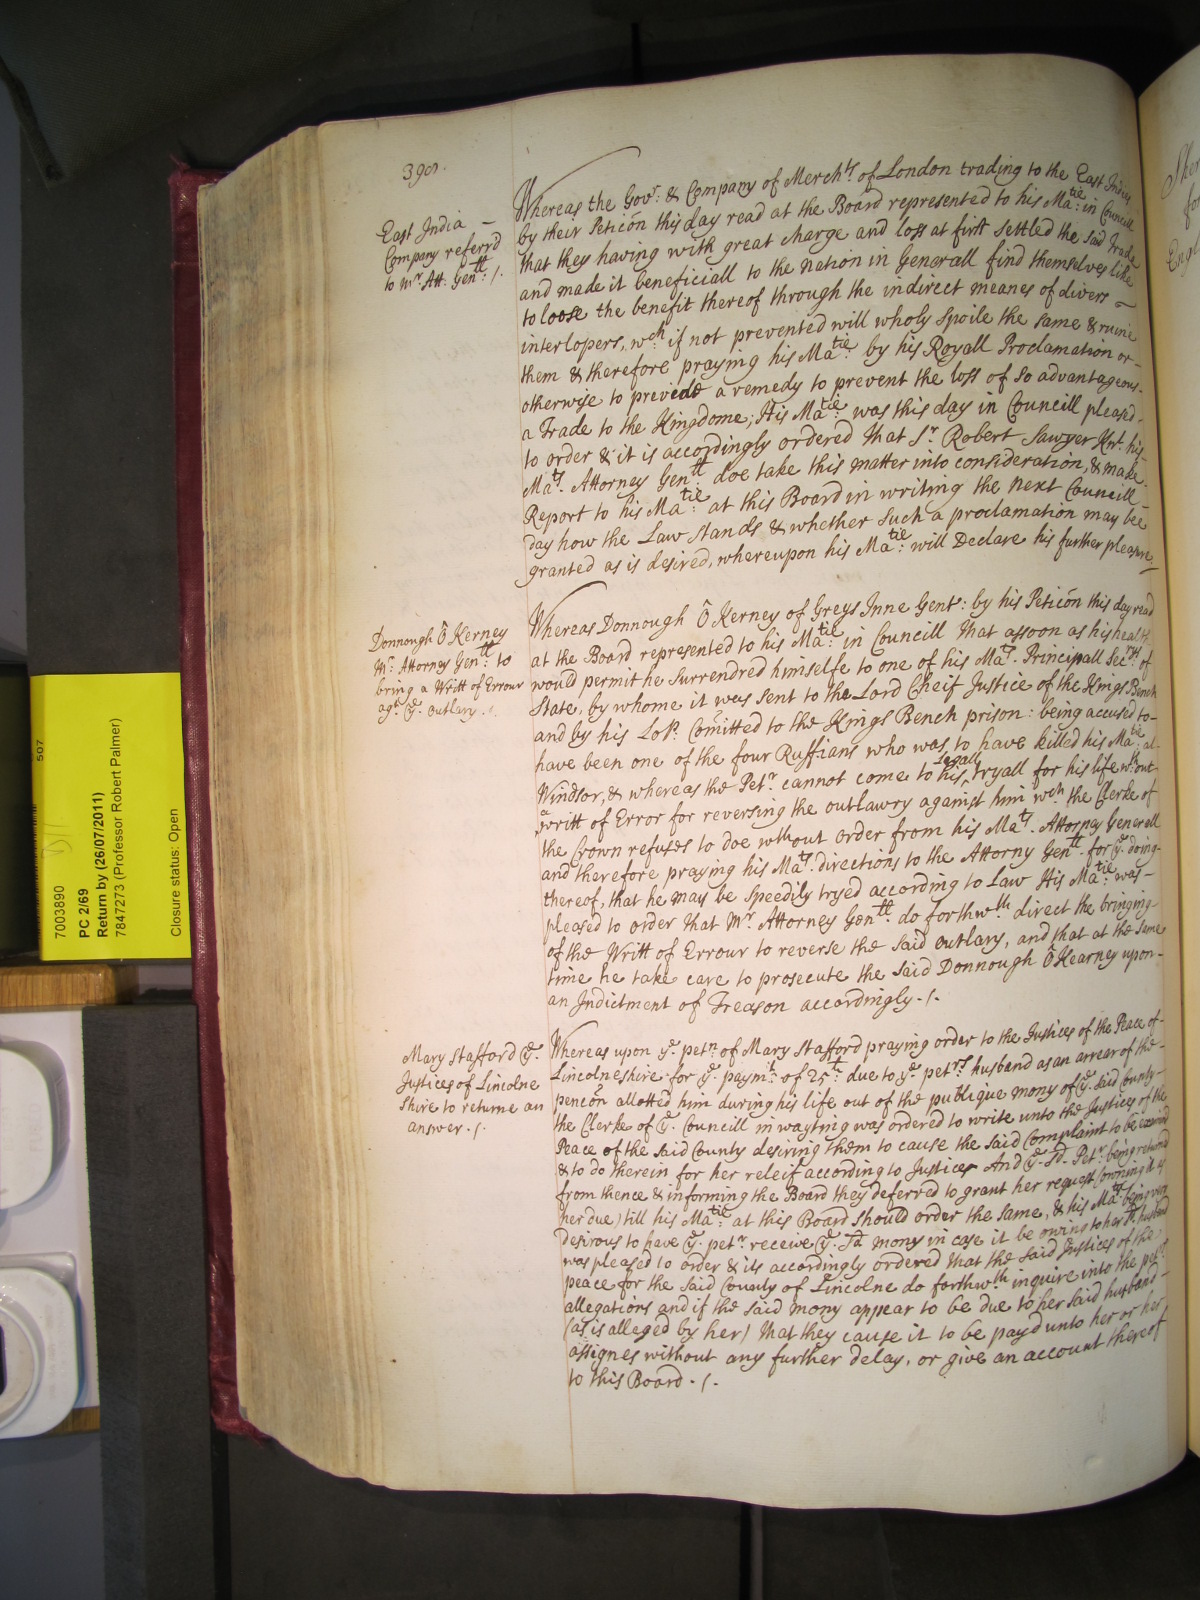 390.
East India –
Company referrd
to Mr. Att: Genll: /.
Whereas the Govr: & Company of Merchts. of London trading to the East Indies
by their Peticon this day read at the Board represented to his Matie: in Councill
that they having with great charge and loss at first settled the said Trade
and made it beneficiall to the nation in Generall find themselves like
to loose the benefit thereof through the indirect meanes of divers –
interlopers, wch. if not prevented will wholy spoile the same & ruine
them & therefore praying his Matie: by his Royall Proclamation or –
otherwise to provide a remedy to prevent the loss of so advantageous –
a Trade to the Kingdome; His Matie: was this day in Councill pleased –
to order & it is accordingly ordered that Sr. Robert Sawyer Knt. his –
Mats. Attorney Genll: doe take this matter into consideration, & make
Report to his Matie: at this Board in writing the next Councill –
day how the Law stands & whether such a proclamation may bee
granted as is desired, whereupon his Matie: will Declare his further pleasure. /
Donnough Ô Kerney
Mr. Attorney Genll: to
bring a Writt of Errour
agt. ye. outlary. /.
Whereas Donnough Ô Kerney of Greys Inne Gent: by his Peticon this day read
at the Board represented to his Matie: in Councill That assoon as his health
would permit he Surrendred himselfe to one of his Mats. Principall Secrys. of
State, by whome it was sent to the Lord Cheif Justice of the Kings Bench
and by his Lop. Comitted to the Kings Bench prison: being accused to –
have been one of the four Ruffians who was to have killed his Matie: at –
Windsor, & whereas the Petr. cannot come to his legall Tryall for his life wthout
a writt of Error for reversing the outlawry against him wch the Clerke of
the Crown refuses to doe wthout order from his Mats. Attorney Generall
and therefore praying his Mats. directions to the Attorny Genll. for ye. doing –
thereof, that he may be speedily tryed according to Law His Matie: was –
pleased to order that Mr. Attorney Genll: do forthwth. direct the bringing –
of the Writt of Errour to reverse the said outlary, and that at the same
time he take care to prosecute the said Donnough ÔKearney upon –
an Indictment of Treason accordingly. /.
Mary Stafford ye.
Justices of Lincolne
shire to returne an
answer. /.
Whereas upon ye. petn. of Mary Stafford praying order to the Justices of the Peace of –
Lincolneshire for ye. paymt. of 25l. due to ye. petrs. husband as an arrear of the –
pencon allotted him during his life out of the publique mony of ye. said County –
the Clerke of ye. Councill in wayting was ordered to write unto the Justices of the
Peace of the said County desiring them to cause the said Complaint to be examined
& to do therein for her releif according to Justice And ye. sd. Petr. being returned
from thence & informing the Board they deferred to grant her request (owning it as
her due) till his Matie: at this Board should order the same, & his Mats. being very
desirous to have ye. petr. receive ye. sd mony in case it be owing to her sd. husband
was pleased to order & its accordingly ordered that the said Justices of the
peace for the said County of Lincolne do forthwth. inquire into the petrs.
allegations and if the said mony appear to be due to her said husband –
(as is alleged by her) that they cause it to be payd unto her or her
assignes without any further delay, or give an account thereof
to this Board. /.
507
7003890
PC 2/69
Return by (26/07/2011)
7847273 (Professor Robert Palmer)
Closure status: Open